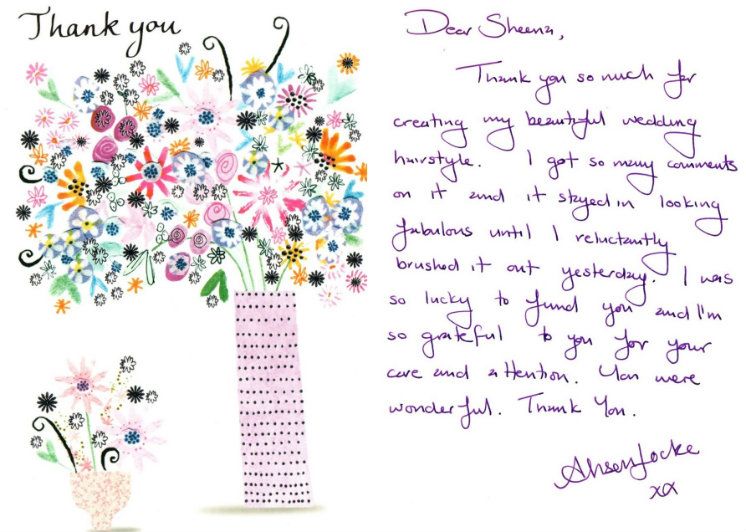 Thank you
Dear Sheena,
Thank you so much for
creating my beautiful wedding
hairstyle. I got so many comments
on it and it stayed in looking
fabulous until I reluctantly
brushed it out yesterday. I was
so lucky to find you and I'm
so grateful to you for your
care and attention. You were
wonderful. Thank You.
xx